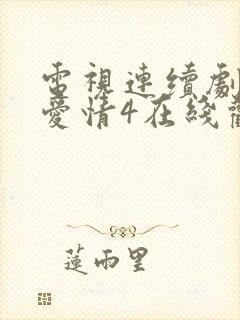 電視連續劇
愛情4在綫
蓮雨里